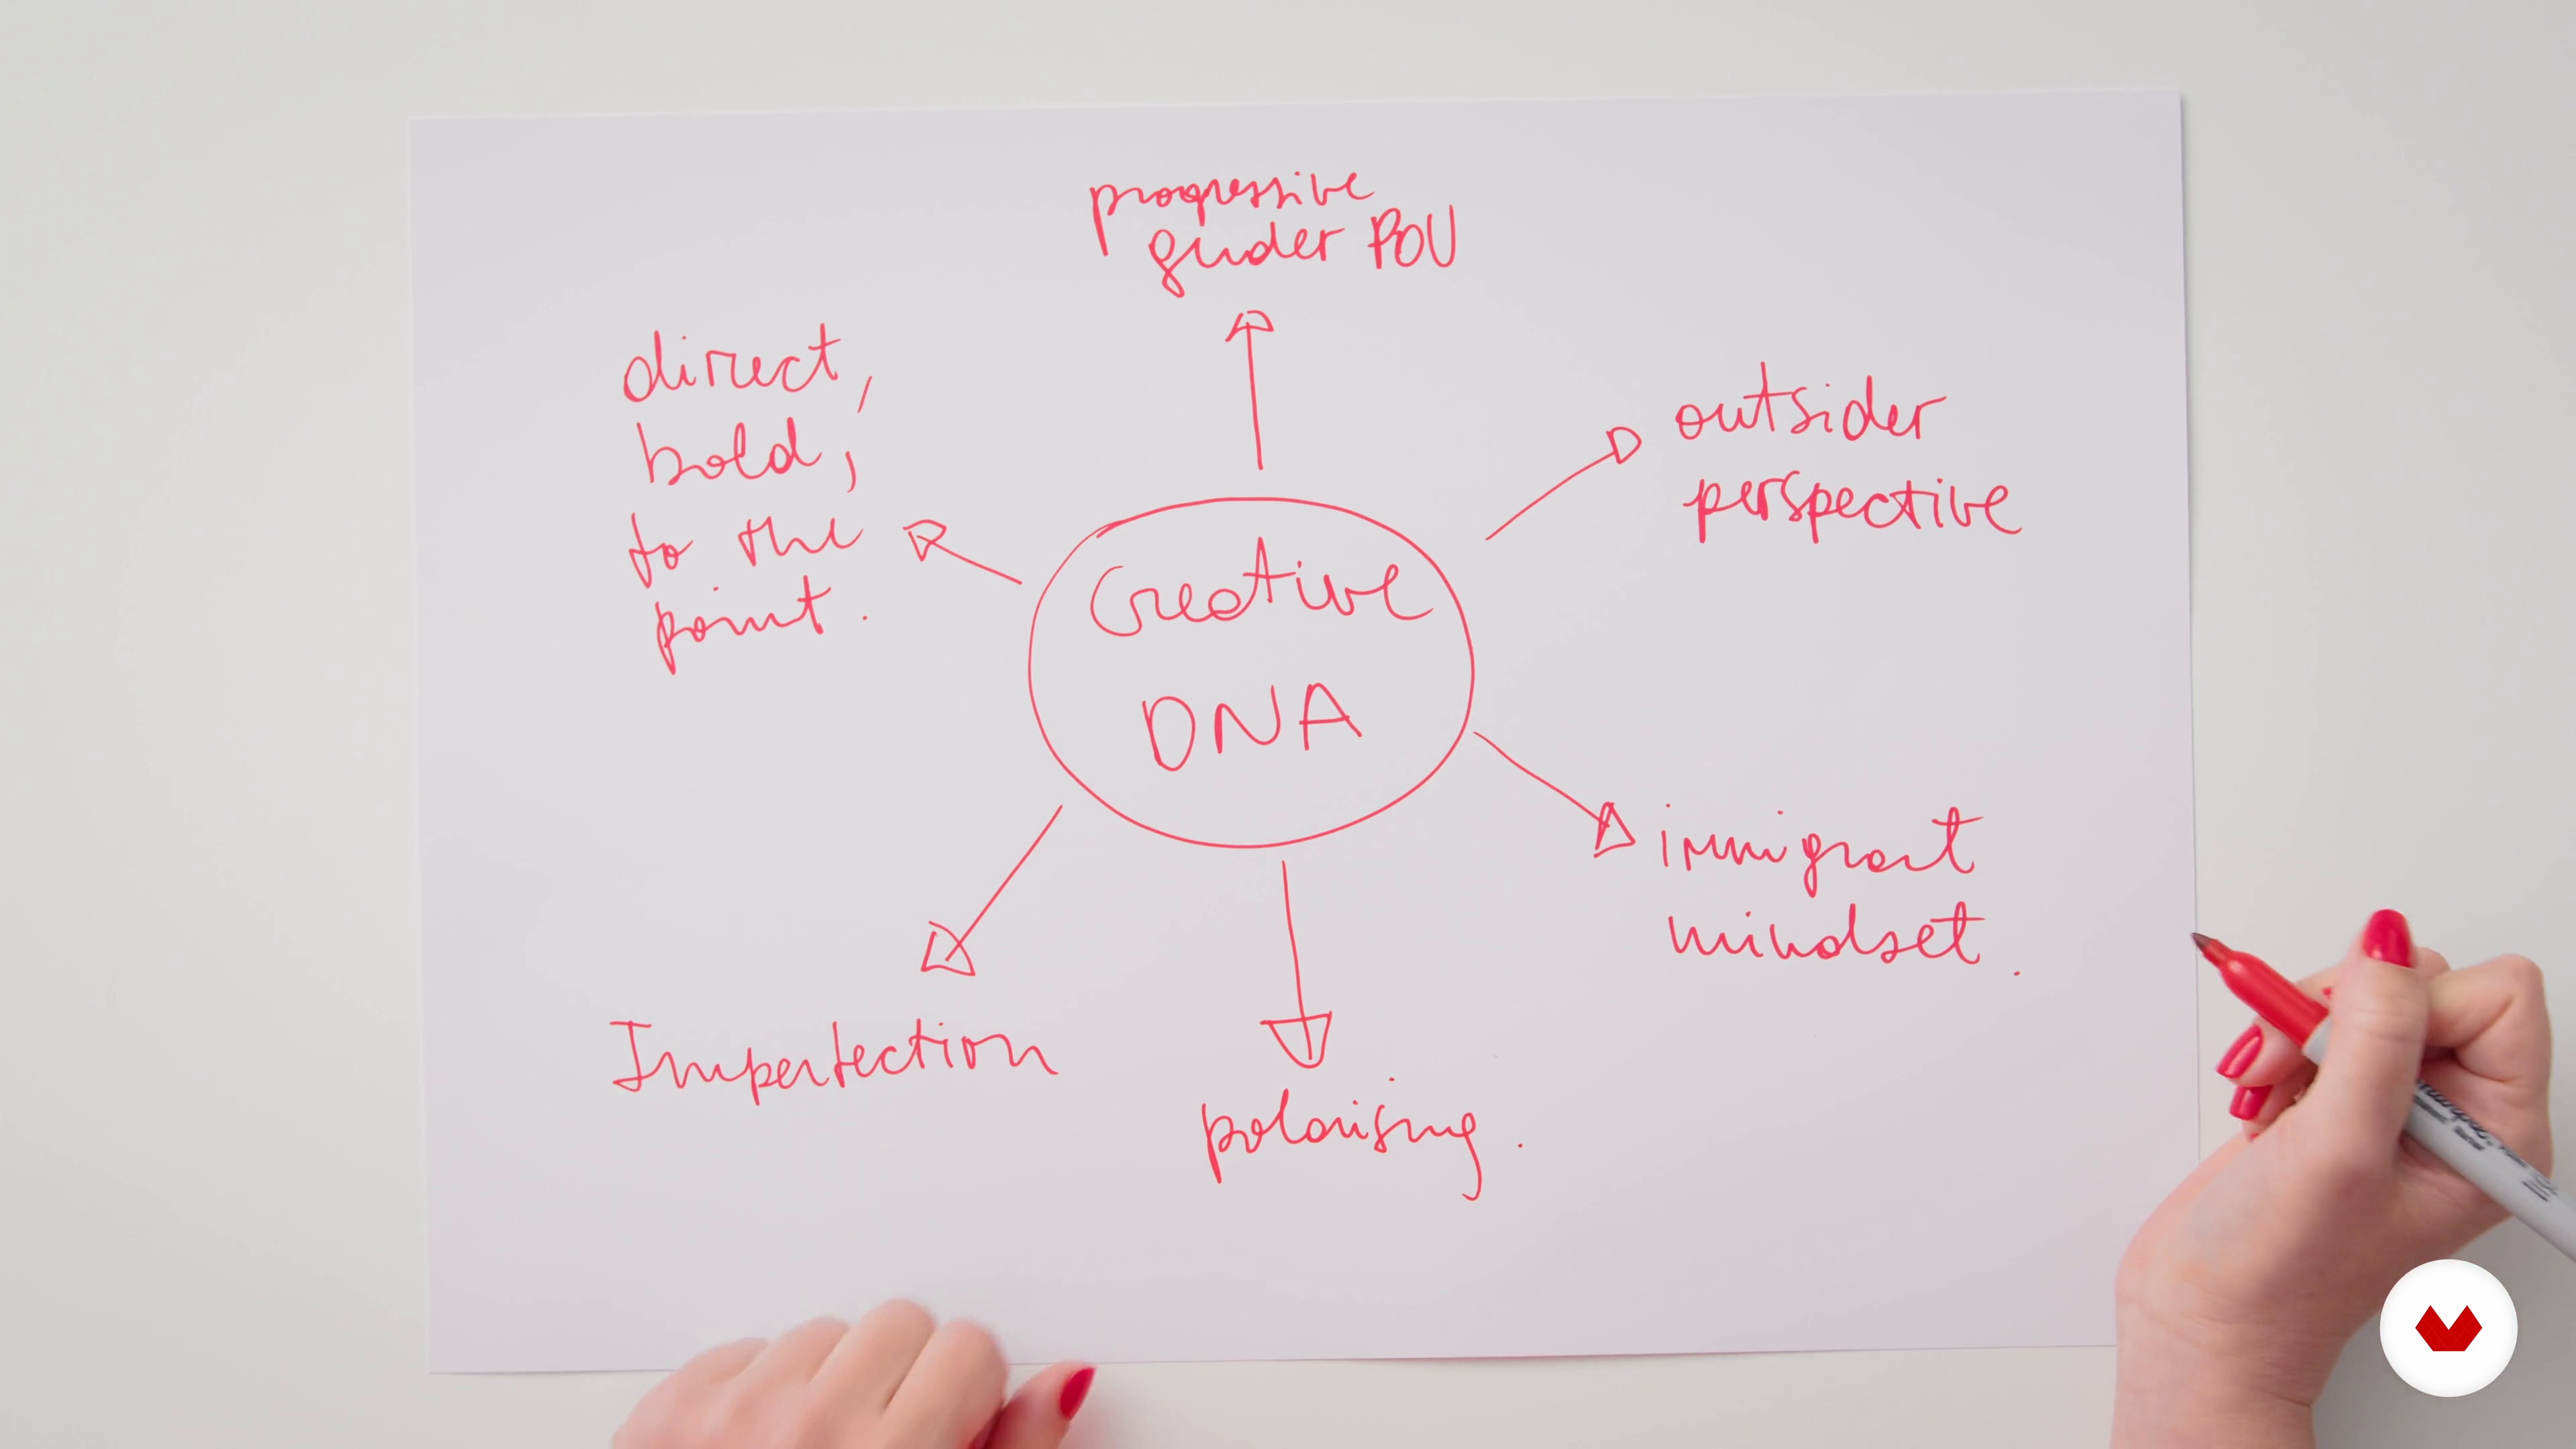 progressive
gender POV
direct,
bold,
to the
point.
outsider
perspective
Creative
DNA
immigrant
mindset.
Imperfection
polarising.
Sharpie